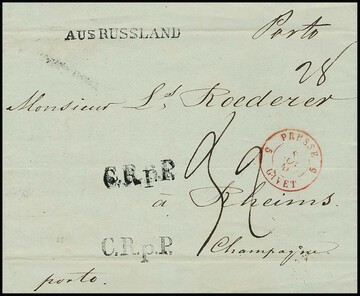 AUS RUSSLAND
Porto
28
Monsieur Ls. Roederer
C.R.p.R.
5 PRUSSE. 5
GIVET
à Rheims.
C.R.p.P.
Champagne.
porto.